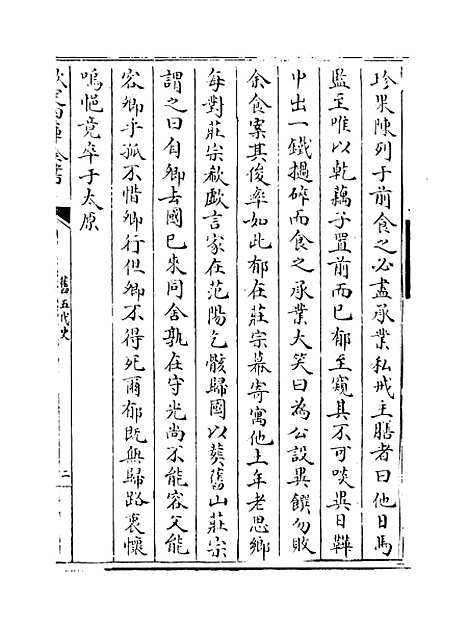 珍果陳列于前食之必盡承業私戒主膳者曰他日馬
監至唯以乾藕子置前而已郁至窺其不可啖異日鞾
中出一鐵撾碎而食之承業大笑曰為公設異饌勿敗
余食案其俊率如此郁在莊宗幕寄寓他土年老思鄉
每對莊宗欷歔言家在范陽乞骸歸國以葬舊山莊宗
謂之曰自卿去國已來同舍孰在守光尚不能容父能
容卿乎孤不惜卿行但卿不得死爾郁既無歸路衷懷
嗚悒竟卒于太原
欽定四庫全書
舊五代史